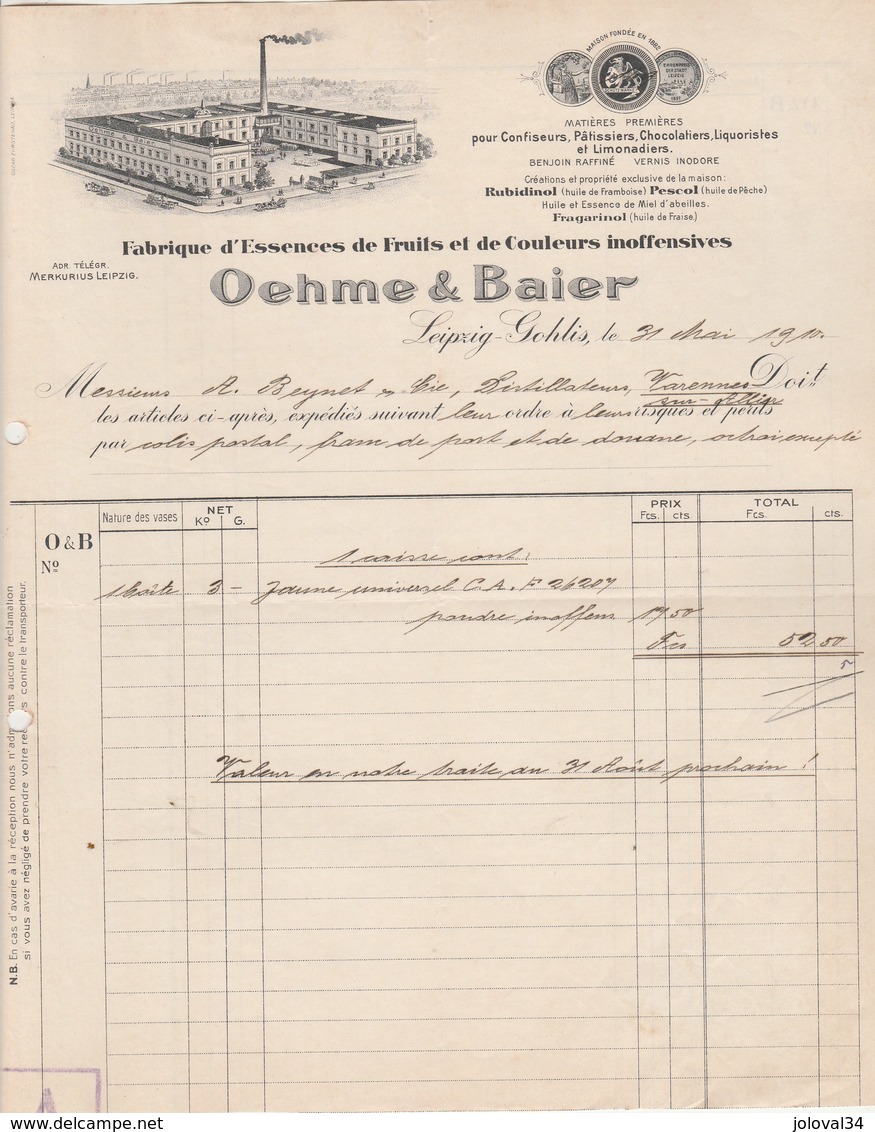 MAISON FONDÉE EN 1862
SCHUTZ MARKE
EHRENPREIS
DER STADT
LEIPZIG
1897
MATIÈRES PREMIÈRES
pour Confiseurs, Pâtissiers, Chocolatiers, Liquoristes
et Limonadiers.
BENJOIN RAFFINÉ VERNIS INODORE
Créations et propriété exclusive de la maison:
Rubidinol (huile de Framboise) Pescol (huile de Pêche)
Huile et Essence de Miel d'abeilles.
Fragarinol (huile de Fraise.)
OEHME & BAIER
Fabrique d'Essences de Fruits et de Couleurs inoffensives
ADR. TÉLÉGR.
MERKURIUS LEIPZIG.
Oehme & Baier
Leipzig-Gohlis, le 31 Mai 1910.
Messieurs A. Beynet & Cie, Distillateurs, Varennes Doit
sur-Allier
les articles ci-après, expédiés suivant leur ordre à leurs risques et périls
par colis postal, franc de port et de douane, octroi excepté
Nature des vases NET PRIX TOTAL
Ko G. Fcs. cts Fcs. cts.
O & B
No
1 caisse cont:
1 boîte 3 – Jaune universel C. A. F 26207
poudre inoffens 17 50
Fcs 52 50
5
Valeur en notre traite au 31 Août prochain!
N.B. En cas d'avarie à la réception nous n'admettons aucune réclamation
si vous avez négligé de prendre votre recours contre le transporteur.
www.delcampe.net
joloval34